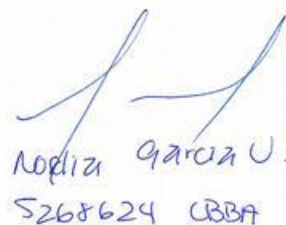 Noelia Garcia U.
5268624 CBBA